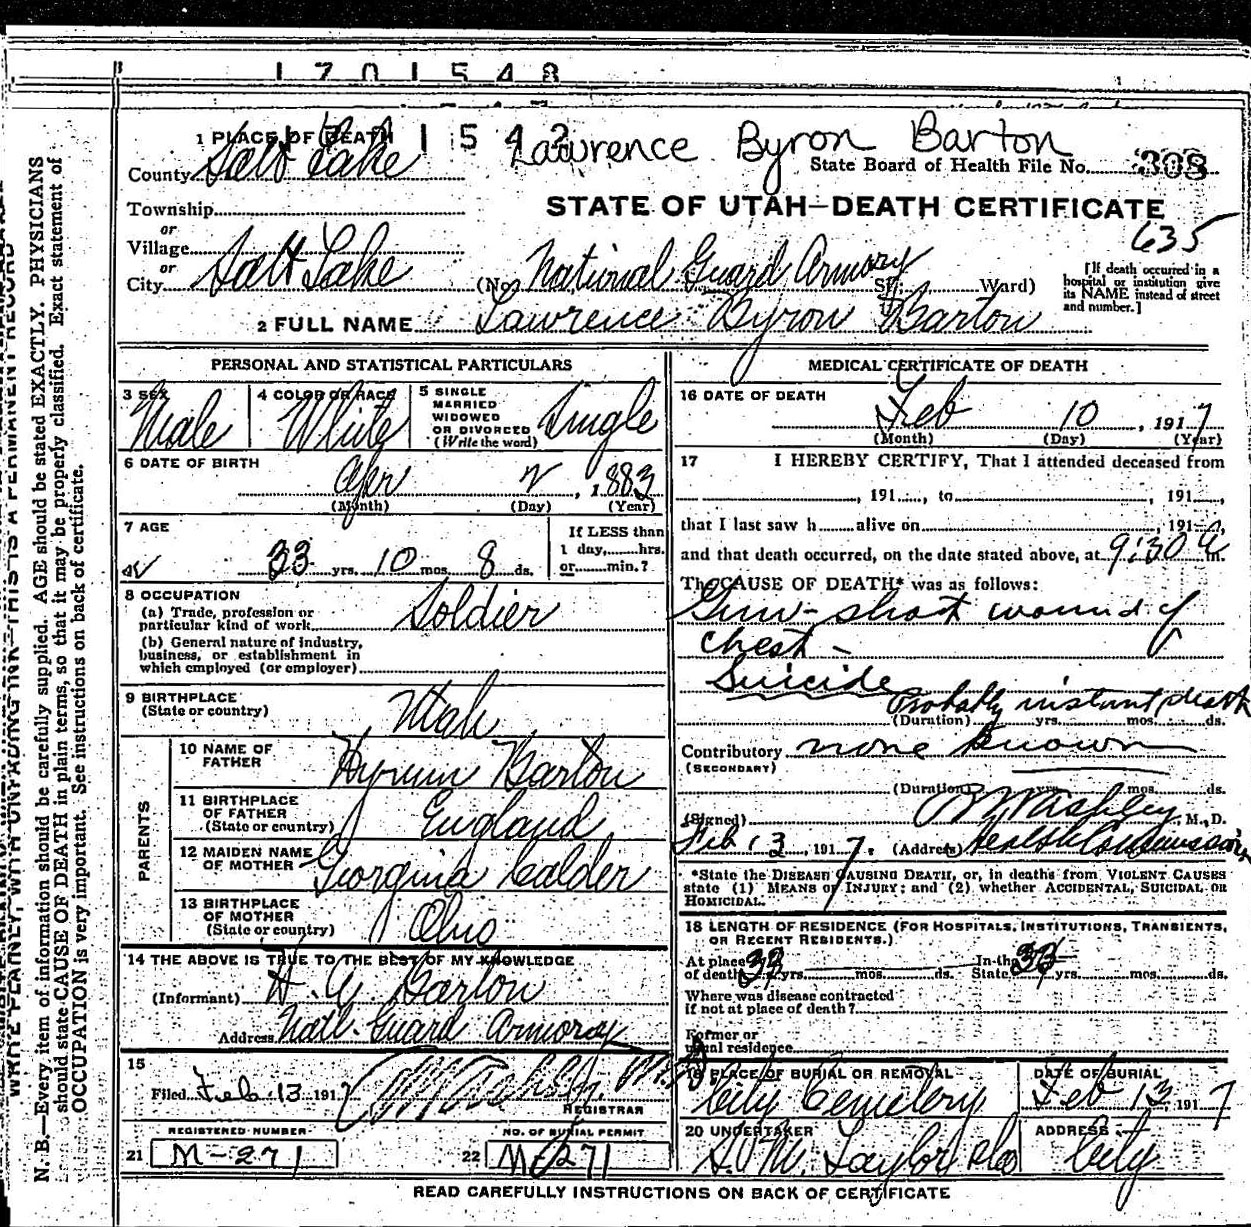 1 7 0 1 5 4 8
1 PLACE OF DEATH 1 5 4 Lawrence Byron Barton
County Salt Lake State Board of Health File No. 308
Township
STATE OF UTAH—DEATH CERTIFICATE
or
635
Village
or
City Salt Lake (No. National Guard Armory St; Ward)
[If death occurred in a hospital or institution give its NAME instead of street and number.]
2 FULL NAME Lawrence Byron Barton
PERSONAL AND STATISTICAL PARTICULARS
3 SEX Male
4 COLOR OR RACE White
5 SINGLE
MARRIED
WIDOWED
OR DIVORCED
(Write the word) Single
6 DATE OF BIRTH
Apr 2, 1883
(Month) (Day) (Year)
7 AGE
33 yrs. 10 mos. 8 ds.
If LESS than
1 day, hrs.
or min.?
8 OCCUPATION
(a) Trade, profession or
particular kind of work Soldier
(b) General nature of industry,
business, or establishment in
which employed (or employer)
9 BIRTHPLACE
(State or country) Utah
PARENTS
10 NAME OF
FATHER Hyrum Barton
11 BIRTHPLACE
OF FATHER
(State or country) England
12 MAIDEN NAME
OF MOTHER Georgina Calder
13 BIRTHPLACE
OF MOTHER
(State or country) Ohio
14 THE ABOVE IS TRUE TO THE BEST OF MY KNOWLEDGE
(Informant) Barton
Address Natl. Guard Armory
15
Filed Feb. 13 1917
REGISTRAR
REGISTERED NUMBER
21 M-271
NO. OF BURIAL PERMIT
22 M-271
MEDICAL CERTIFICATE OF DEATH
16 DATE OF DEATH
Feb 10, 1917
(Month) (Day) (Year)
17 I HEREBY CERTIFY, That I attended deceased from
, 191 , to , 191 ,
that I last saw h alive on , 191 ,
and that death occurred, on the date stated above, at 9:30 a m.
The CAUSE OF DEATH* was as follows:
Gun-shot wound of
chest -
Suicide
Probably instant death
(Duration) yrs. mos. ds.
Contributory none known
(SECONDARY)
(Duration) yrs. mos. ds.
(Signed) M. D.
Feb 13, 1917. (Address) Health Commissioner
*State the DISEASE CAUSING DEATH, or, in deaths from VIOLENT CAUSES
state (1) MEANS OF INJURY; and (2) whether ACCIDENTAL, SUICIDAL OR
HOMICIDAL.
18 LENGTH OF RESIDENCE (FOR HOSPITALS, INSTITUTIONS, TRANSIENTS,
OR RECENT RESIDENTS.)
At place In the
of death 33 yrs. mos. ds. State 33 yrs. mos. ds.
Where was disease contracted
if not at place of death?
Former or
usual residence
19 PLACE OF BURIAL OR REMOVAL
City Cemetery
DATE OF BURIAL
Feb 13, 1917
20 UNDERTAKER
Taylor
ADDRESS
City
READ CAREFULLY INSTRUCTIONS ON BACK OF CERTIFICATE
WRITE PLAINLY, WITH UNFADING INK—THIS IS A PERMANENT RECORD
N. B.—Every item of information should be carefully supplied. AGE should be stated EXACTLY. PHYSICIANS
should state CAUSE OF DEATH in plain terms, so that it may be properly classified. Exact statement of
OCCUPATION is very important. See instructions on back of certificate.